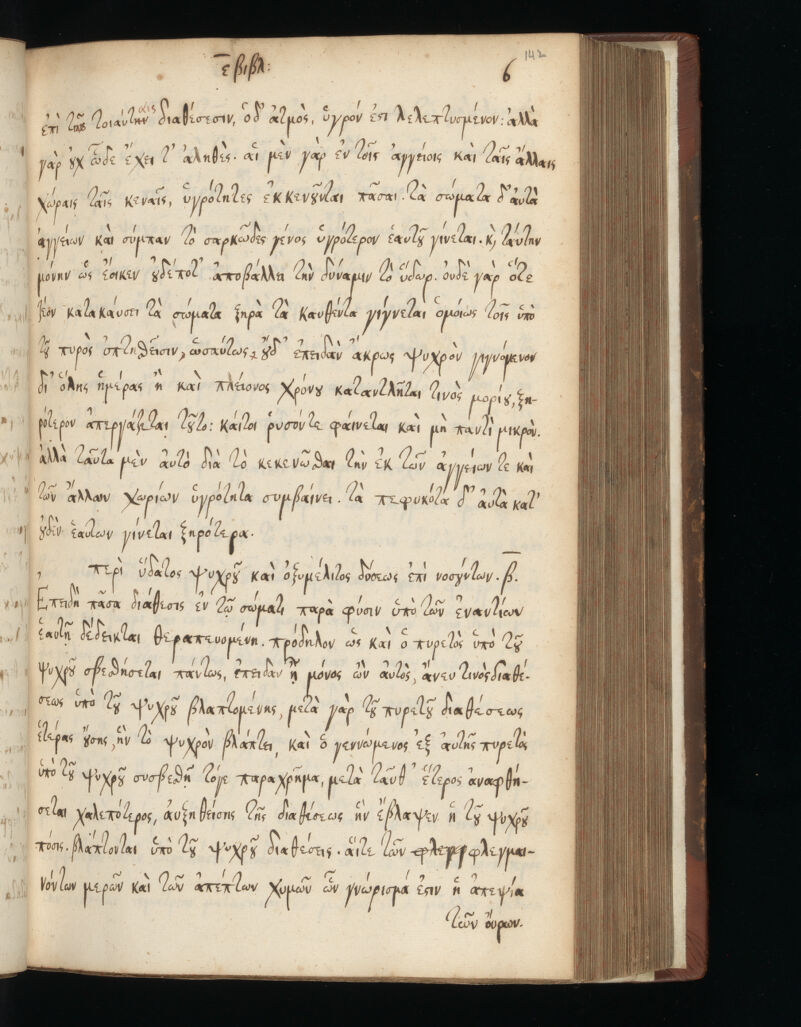 ε βιβλ:
142
6
ἐπὶ ταῖς τοιαύταις διαθέσεσιν, ὁ δ' ἀτμὸς, ὑγρόν ἐστι λελεπτυσμένον: ἀλλὰ
γὰρ οὐχ ὧδε ἔχει τ' ἀληθὲς. αἱ μὲν γὰρ ἐν τοῖς ἀγγείοις καὶ ταῖς ἄλλαις
χώραις ταῖς κεναῖς, ὑγρότητες ἐκκενοῦνται πᾶσαι. τὰ σώματα δ' αὐτὰ
ἀγγείων καὶ σύμπαν τὸ σαρκῶδες γένος ὑγρότερον ἑαυτοῦ γίνεται. κ̀, ταύτην
μόνην ὡς ἔοικεν οὐδέποτ' ἀποβάλλει τὴν δύναμιν τὸ ὕδωρ. οὐδὲ γὰρ ὅτε
ζέον κατακάυσει τὰ σώματα ξηρὰ τὰ καυθέντα γίγνεται ὁμοίως τοῖς ὑπὸ
τοῦ πυρὸς ὀπτηθεῖσιν, ὡσαύτως οὐδ' ἐπειδὰν ἄκρως ψυχρὸν γιγνόμενον
δι' ὅλης ἡμέρας ἢ καὶ πλείονος χρόνου καταντλῆται τινὸς μορίου, ξη-
ρότερον ἀπεργάζεται τοῦτο: κάιτοι ῥυσόν τε φάινεται καὶ μὴ παντὶ μικρὸν.
ἀλλὰ ταῦτα μὲν ἀυτὸ διὰ τὸ κεκενῶσθαι τὴν ἐκ τῶν ἀγγείων τε καὶ
τῶν ἄλλων χωρίων ὑγρότητα συμβαίνει. τὰ πεφυκότα δ' ἀυτὰ κατ'
οὐδὲν ἑαυτων γίνεται ξηρότερα.
περὶ ὕδατος ψυχροῦ καὶ ὀξυμέλιτος δόσεως ἐπὶ νοσούντων. β.
Ἐπειδὴ πᾶσα διάθεσις ἐν τῷ σώματι παρὰ φύσιν ὑπὸ τῶν ἐναντίων
ἑαυτῇ δέδεικται θεραπευομένη. πρόδηλον ὡς καὶ ὁ πυρετὸς ὑπὸ τοῦ
ψυχροῦ σβεσθήσεται πάντως, ἐπειδὰν ᾖ μόνος ὢν αὐτὸς, ἄνευ τινὸς διαθέ-
σεως ὑπὸ τοῦ ψυχροῦ βλαπτομένης, μετὰ γὰρ τοῦ πυρετοῦ διαθέσεως
ἑτέρας οὔσης, ἣν τὸ ψυχρὸν βλάπτει, καὶ ὁ γεννώμενος ἐξ ἀυτῆς πυρετὸς
ὑπὸ τοῦ ψυχροῦ συσβεσθῇ τόγε παραχρῆμα, μετὰ ταῦθ' ἕτερος ἀναφθή-
σεται χαλεπότερος, ἀυξηθείσης τῆς διαθέσεως ἣν ἔβλαψεν ἡ τοῦ ψυχροῦ
πόσις. βλάπτονται ὑπὸ τοῦ ψυχροῦ διαθέσεις. ἅιτε τῶν φλεγμαι-
νόντων μερῶν καὶ τῶν ἀπέπτων χυμῶν ὧν γνώρισμά ἐστιν ἡ ἀπεψία
τῶν ὄυρων.